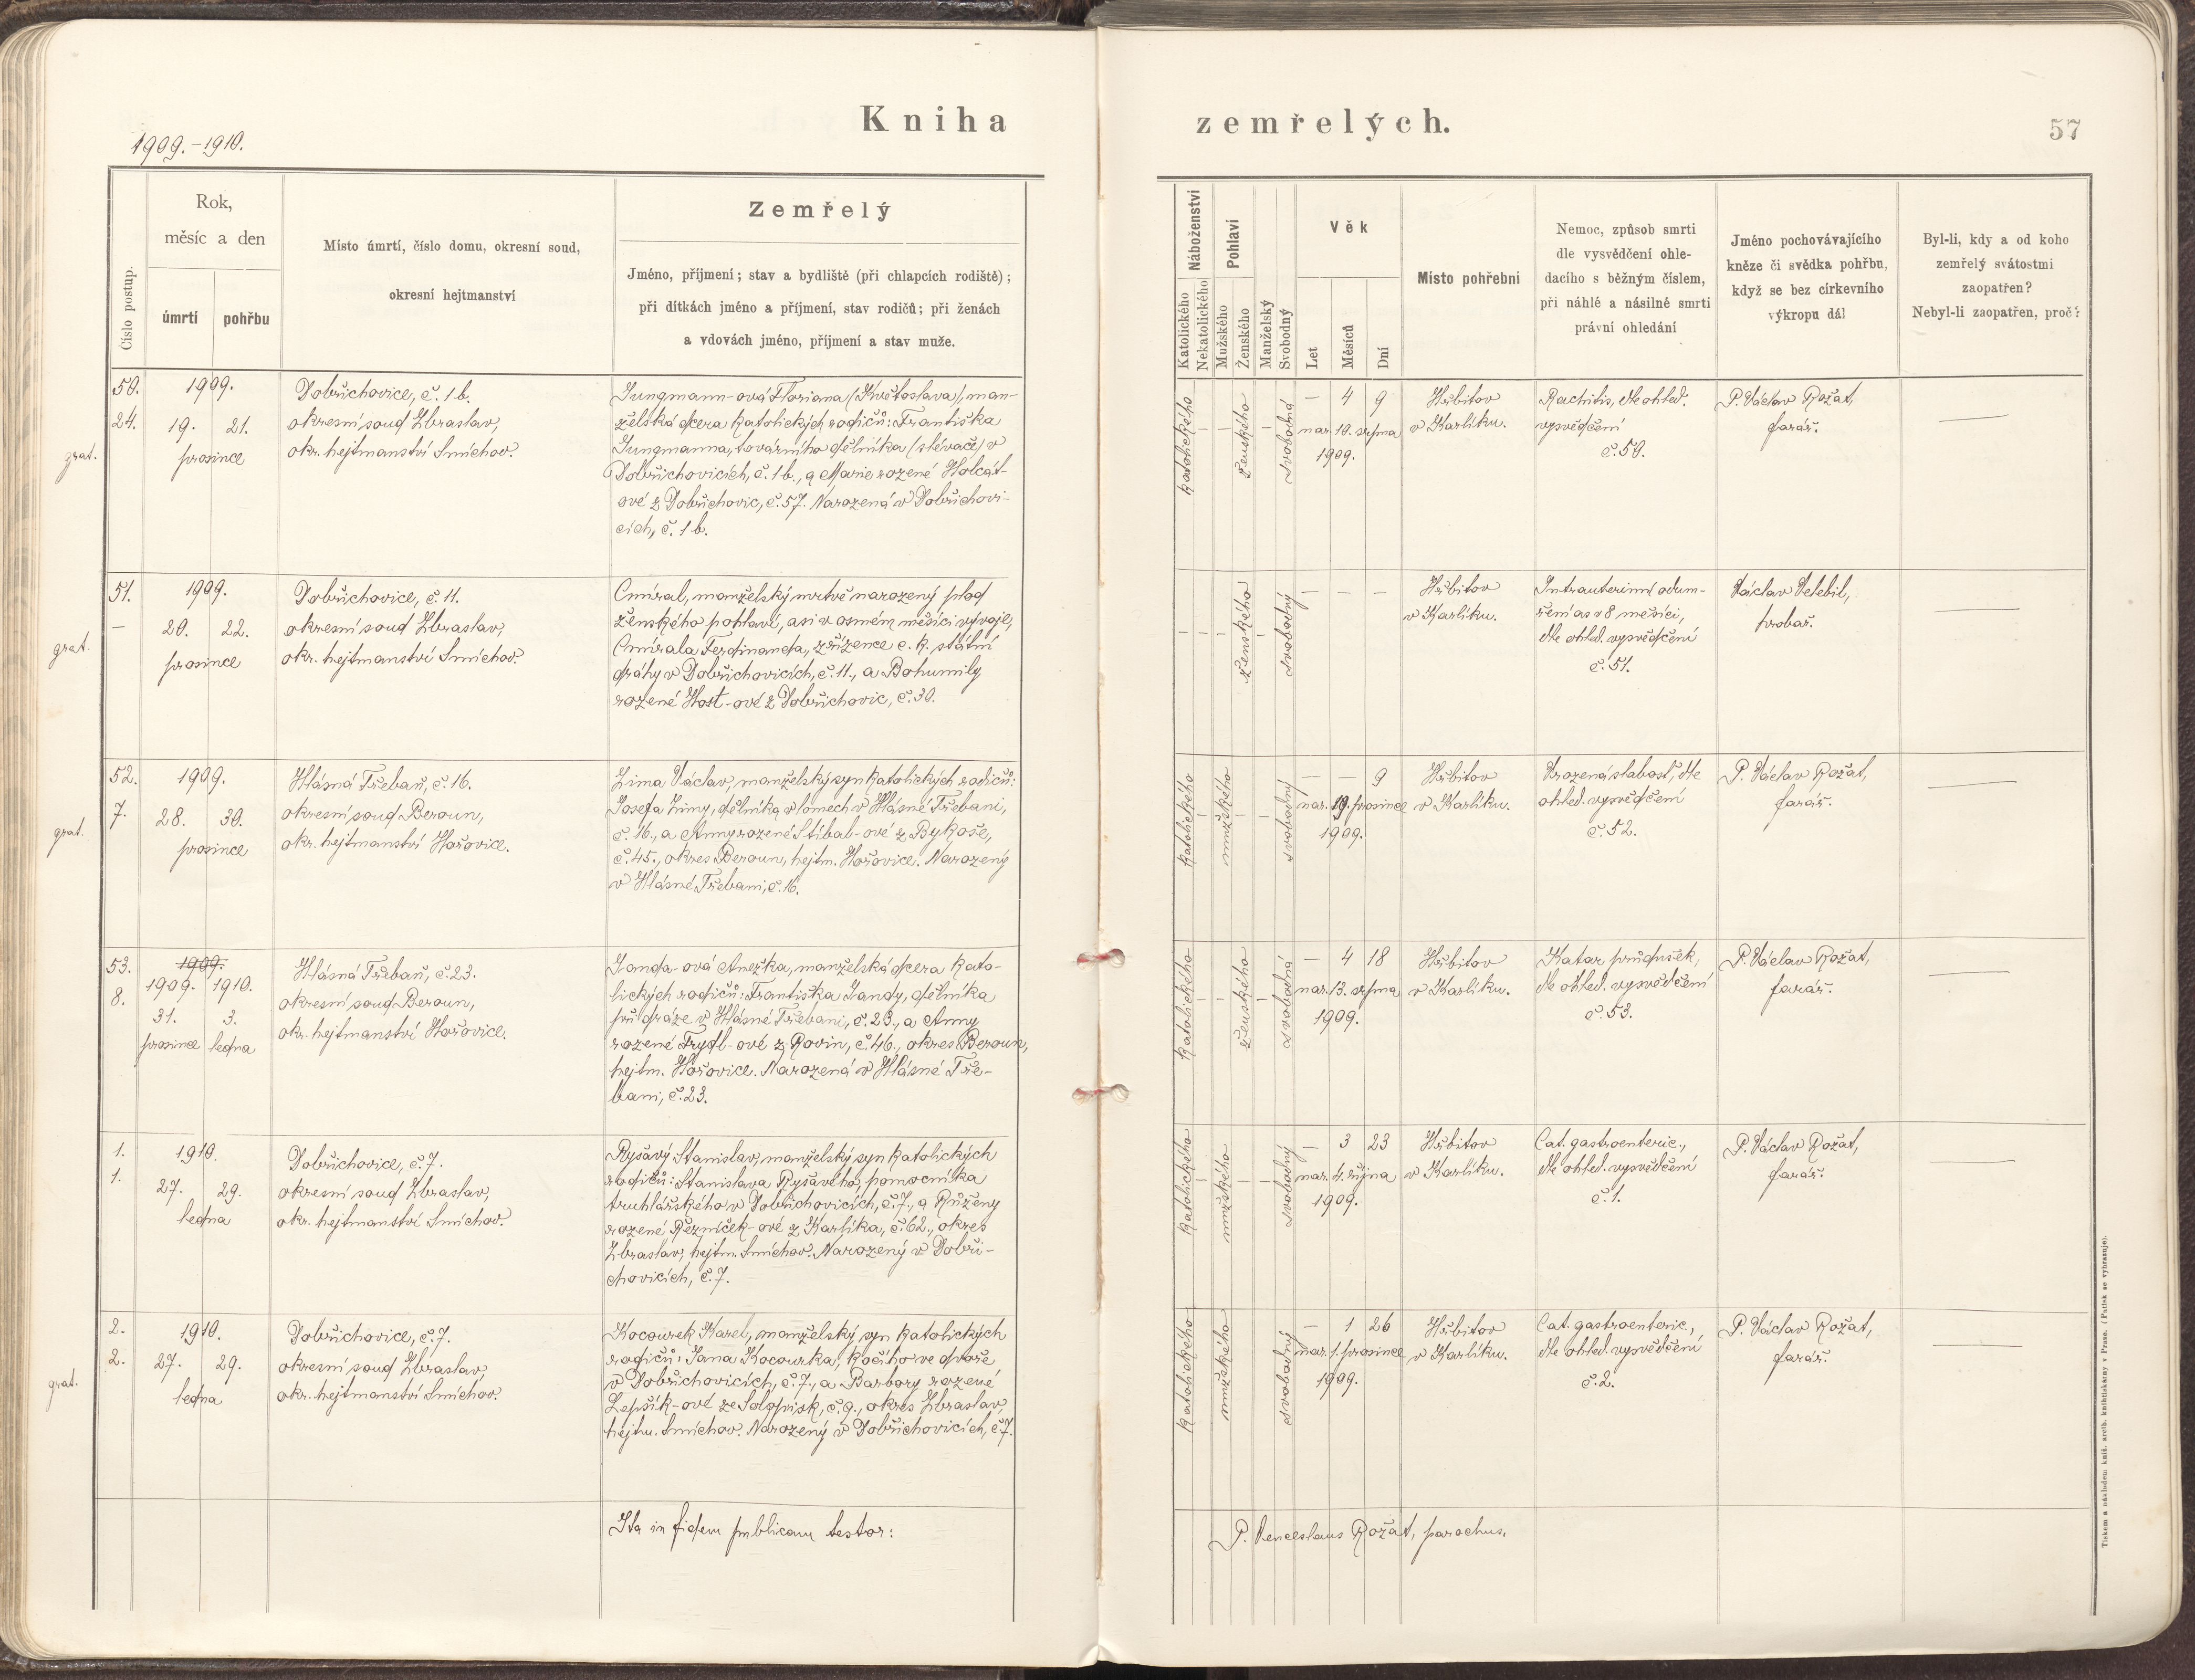 Kniha
1909.-1910.
Číslo postup.
Rok,
měsíc a den
úmrtí
pohřbu
Místo úmrtí, číslo domu, okresní soud,
okresní hejtmanství
Zemřelý
Jméno, příjmení; stav a bydliště (při chlapcích rodiště);
při dítkách jméno a příjmení, stav rodičů; při ženách
a vdovách jméno, příjmení a stav muže.
50.
24.
grat.
1909.
19. 21.
prosince
Dobřichovice, č. 1 b.
okresní soud Zbraslav,
okr. hejtmanství Smíchov.
Jungmann-ová Floriana (Květoslava), man-
želská dcera katolických rodičů: Františka
Jungmanna, továrního dělníka (slévače) v
Dobřichovicích, č. 1 b., a Marie rozené Holcát-
ové z Dobřichovic, č. 57. Narozená v Dobřichovi-
cích, č. 1 b.
51.
—
grat.
1909.
20. 22.
prosince
Dobřichovice, č. 11.
okresní soud Zbraslav,
okr. hejtmanství Smíchov.
Cmíral, manželský mrtvě narozený plod
ženského pohlaví, asi v osmém měsíci vývoje,
Cmírala Ferdinanda, zřízence c. k. státní
dráhy v Dobřichovicích, č. 11., a Bohumily
rozené Host-ové z Dobřichovic, č. 30.
52.
7.
grat.
1909.
28. 30.
prosince
Hlásná Třebaň, č. 16.
okresní soud Beroun,
okr. hejtmanství Hořovice.
Zima Václav, manželský syn katolických rodičů:
Josefa Zimy, dělníka v lomech v Hlásné Třebani,
č. 16., a Anny rozené Stíbal-ové z Bykoše,
č. 45., okres Beroun, hejtm. Hořovice. Narozený
v Hlásné Třebani, č. 16.
53.
8.
1909.
1909. 1910.
31. 3.
prosince ledna
Hlásná Třebaň, č. 23.
okresní soud Beroun,
okr. hejtmanství Hořovice.
Janda-ová Anežka, manželská dcera kato-
lických rodičů: Františka Jandy, dělníka
při dráze v Hlásné Třebani, č. 23., a Anny
rozené Frydl-ové z Rovin, č. 46., okres Beroun,
hejtm. Hořovice. Narozená v Hlásné Tře-
bani, č. 23.
1.
1.
1910.
27. 29.
ledna
Dobřichovice, č. 7.
okresní soud Zbraslav,
okr. hejtmanství Smíchov.
Ryšavý Stanislav, manželský syn katolických
rodičů: Stanislava Ryšavého, pomocníka
truhlářského v Dobřichovicích, č. 7., a Růženy
rozené Řezníček-ové z Karlíka, č. 62., okres
Zbraslav, hejtm. Smíchov. Narozený v Dobři-
chovicích, č. 7.
2.
2.
grat.
1910.
27. 29.
ledna
Dobřichovice, č. 7.
okresní soud Zbraslav,
okr. hejtmanství Smíchov.
Kocourek Karel, manželský syn katolických
rodičů: Jana Kocourka, kočího ve dvoře
v Dobřichovicích, č. 7., a Barbory rozené
Lepšík-ové ze Solopisk, č. 9., okres Zbraslav,
hejtm. Smíchov. Narozený v Dobřichovicích, č. 7.
Ita in fidem publicam testor:
zemřelých.
57
Náboženství
Katolického
Nekatolického
Pohlaví
Mužského
Ženského
Manželský
Svobodný
Věk
Let
Měsíců
Dní
Místo pohřební
Nemoc, způsob smrti
dle vysvědčení ohle-
dacího s běžným číslem,
při náhlé a násilné smrti
právní ohledání
Jméno pochovávajícího
kněze či svědka pohřbu,
když se bez církevního
výkropu dál
Byl-li, kdy a od koho
zemřelý svátostmi
zaopatřen?
Nebyl-li zaopatřen, proč?
katolického
ženského
svobodná
— 4 9
nar. 10. srpna
1909.
Hřbitov
v Karlíku.
Rachitis, dle ohled.
vysvědčení
č. 50.
P. Václav Rožát,
farář.
ženského
svobodný
— — —
Hřbitov
v Karlíku.
Intrauterinní odum-
ření as v 8 měsíci,
dle ohled. vysvědčení
č. 51.
Václav Velebil,
hrobař.
katolického
mužského
svobodný
— — 9
nar. 19. prosince
1909.
Hřbitov
v Karlíku.
Vrozená slabosť, dle
ohled. vysvědčení
č. 52.
P. Václav Rožát,
farář.
katolického
ženského
svobodná
— 4 18
nar. 13. srpna
1909.
Hřbitov
v Karlíku.
Katar průdušek,
dle ohled. vysvědčení
č. 53.
P. Václav Rožát,
farář.
katolického
mužského
svobodný
— 3 23
nar. 4. října
1909.
Hřbitov
v Karlíku.
Cat. gastroenteric.,
dle ohled. vysvědčení
č. 1.
P. Václav Rožát,
farář.
katolického
mužského
svobodný
— 1 26
nar. 1. prosince
1909.
Hřbitov
v Karlíku.
Cat. gastroenteric.,
dle ohled. vysvědčení
č. 2.
P. Václav Rožát,
farář.
P. Venceslaus Rožát, parochus.
Tiskem a nákladem kníž. arcib. knihtiskárny v Praze. (Patisk se vyhrazuje).